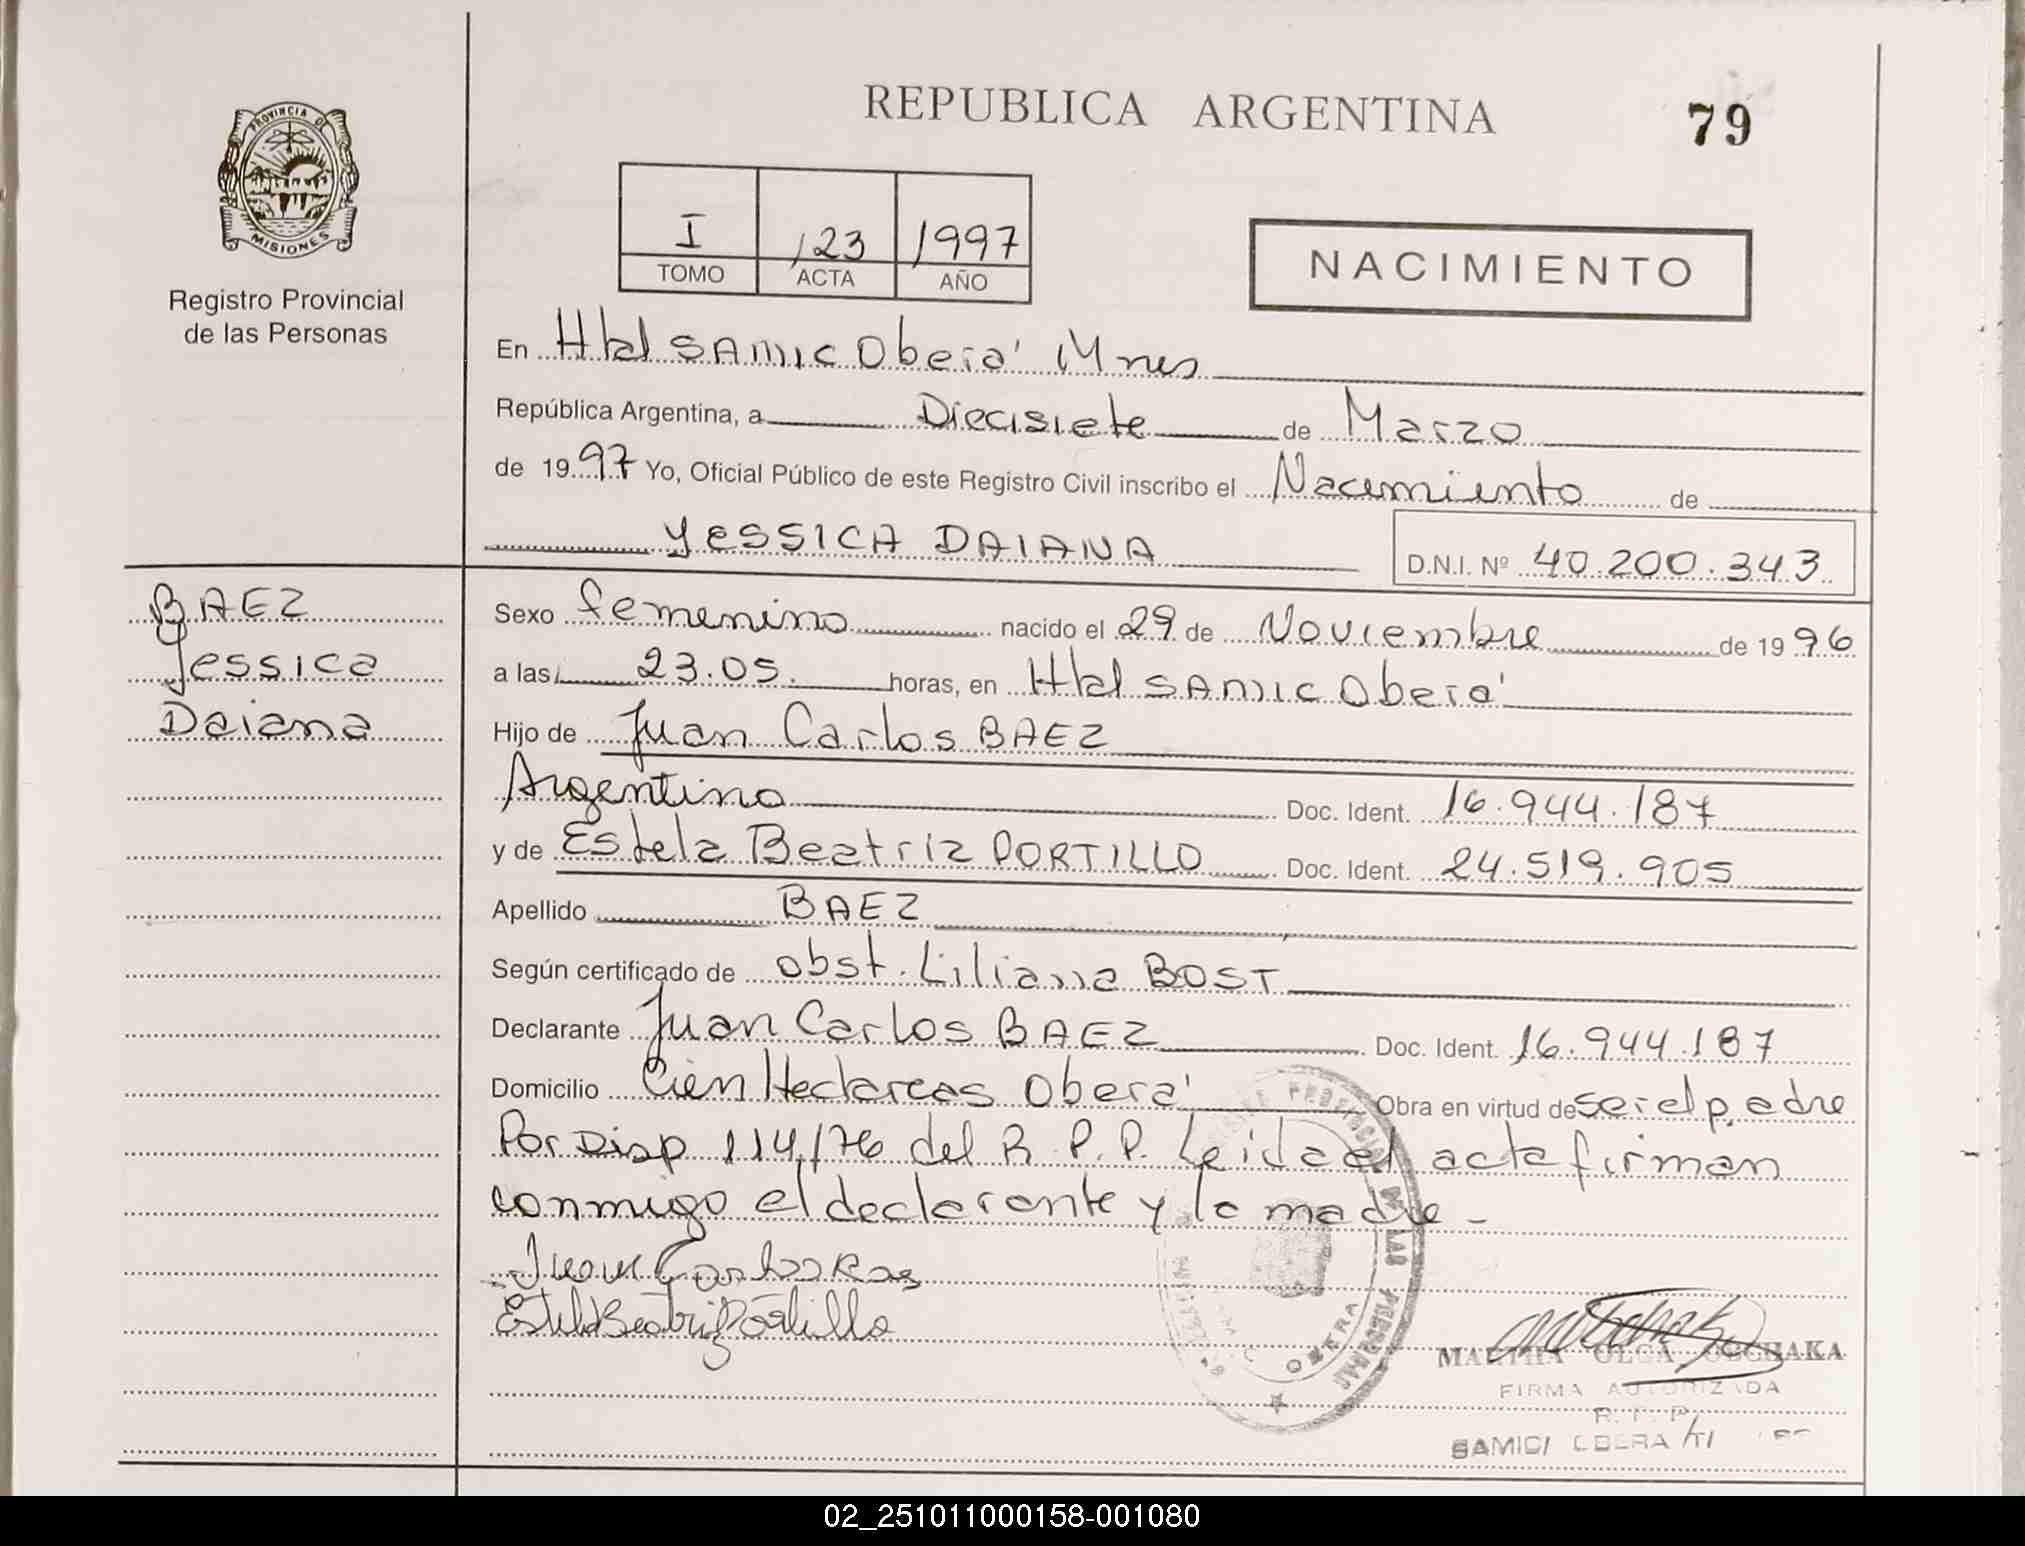 REPUBLICA ARGENTINA
79
PROVINCIA DE
MISIONES
Registro Provincial
de las Personas
I 123 1997
TOMO ACTA AÑO
NACIMIENTO
En Htal SAMIC Oberá Mnes
República Argentina, a Diecisiete de Marzo
de 1997 Yo, Oficial Público de este Registro Civil inscribo el Nacimiento de
YESSICA DAIANA
D.N.I. Nº 40.200.343
BAEZ
Yessica
Daiana
Sexo femenino nacido el 29 de Noviembre de 1996
a las 23.05. horas, en Htal SAMIC Oberá
Hijo de Juan Carlos BAEZ
Argentino Doc. Ident. 16.944.187
y de Estela Beatriz PORTILLO Doc. Ident. 24.519.905
Apellido BAEZ
Según certificado de obst. Liliana BOST
Declarante Juan Carlos BAEZ Doc. Ident. 16.944.187
Domicilio Cien Hectareas Oberá Obra en virtud de ser el padre
Por Disp 114/76 del R.P.P. Leida el acta firman
conmigo el declarante y la madre -
Juan Carlos Baez
Estela Beatriz Portillo
PROVINCIAL DE LAS PERSONAS
OBERA
MARTHA OLGA
FIRMA AUTORIZADA
R. P. P.
SAMIC OBERA
02_251011000158-001080